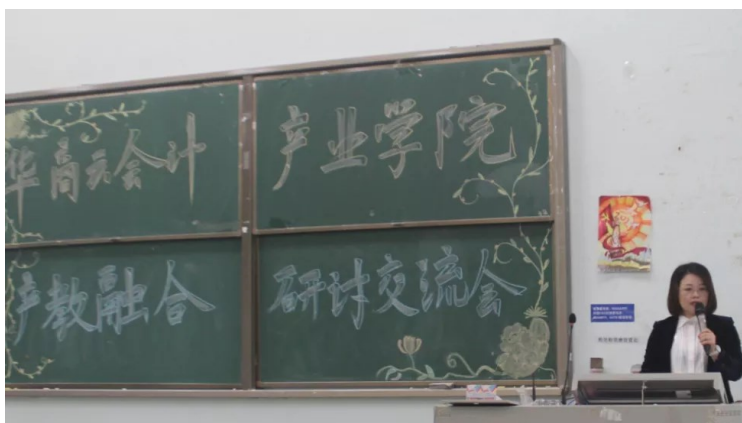 华商云会计
产业学院
产教融合
研讨交流会